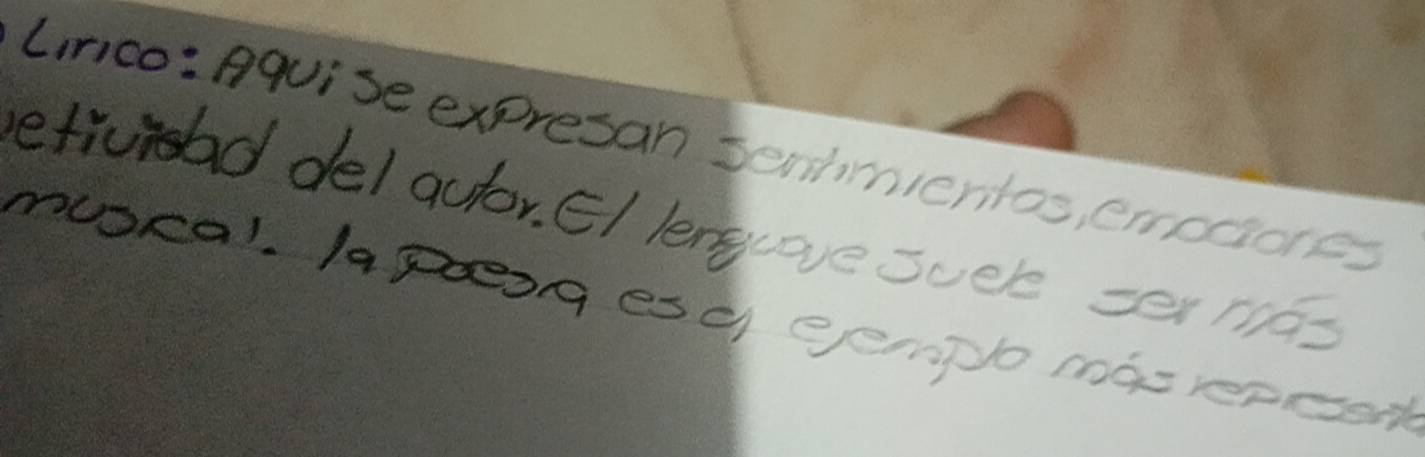 Lirico: Aquí se expresan sentimientos, emociones
jetividad del autor. El lenguaje suele ser más
musical. la poesia es el ejemplo más representa